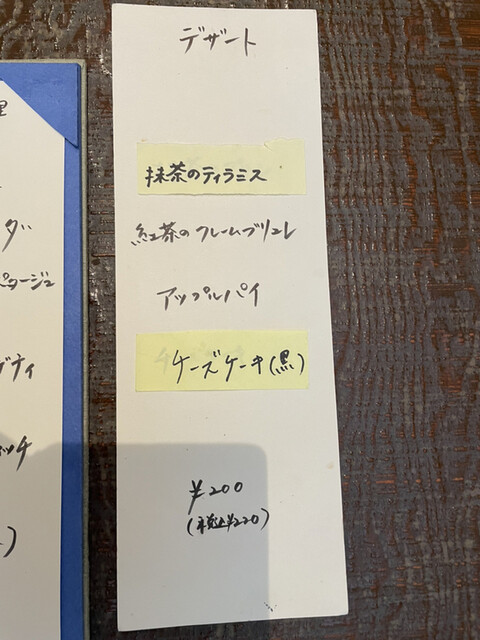 デザート
抹茶のティラミス
紅茶のクレームブリュレ
アップルパイ
チーズケーキ(黒)
¥200
(税込¥220)
理
ダ
パタージュ
ティ
ッチ
)